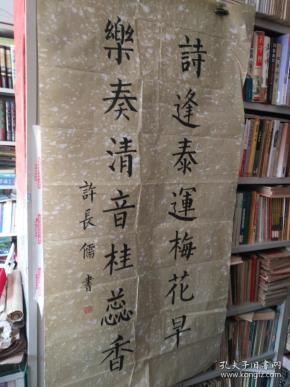 詩逢泰運梅花早
樂奏清音桂蕊香
許長儒書
孔夫子旧书网